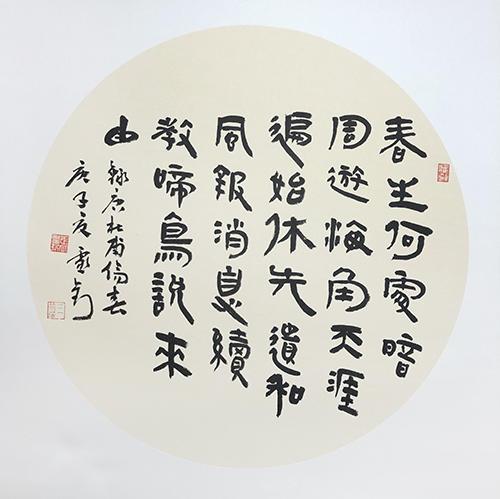 春生何處暗
周遊海角天涯
遍始休先遺和
風報消息續
教啼鳥說來
由
錄唐杜甫傷春
庚子夏